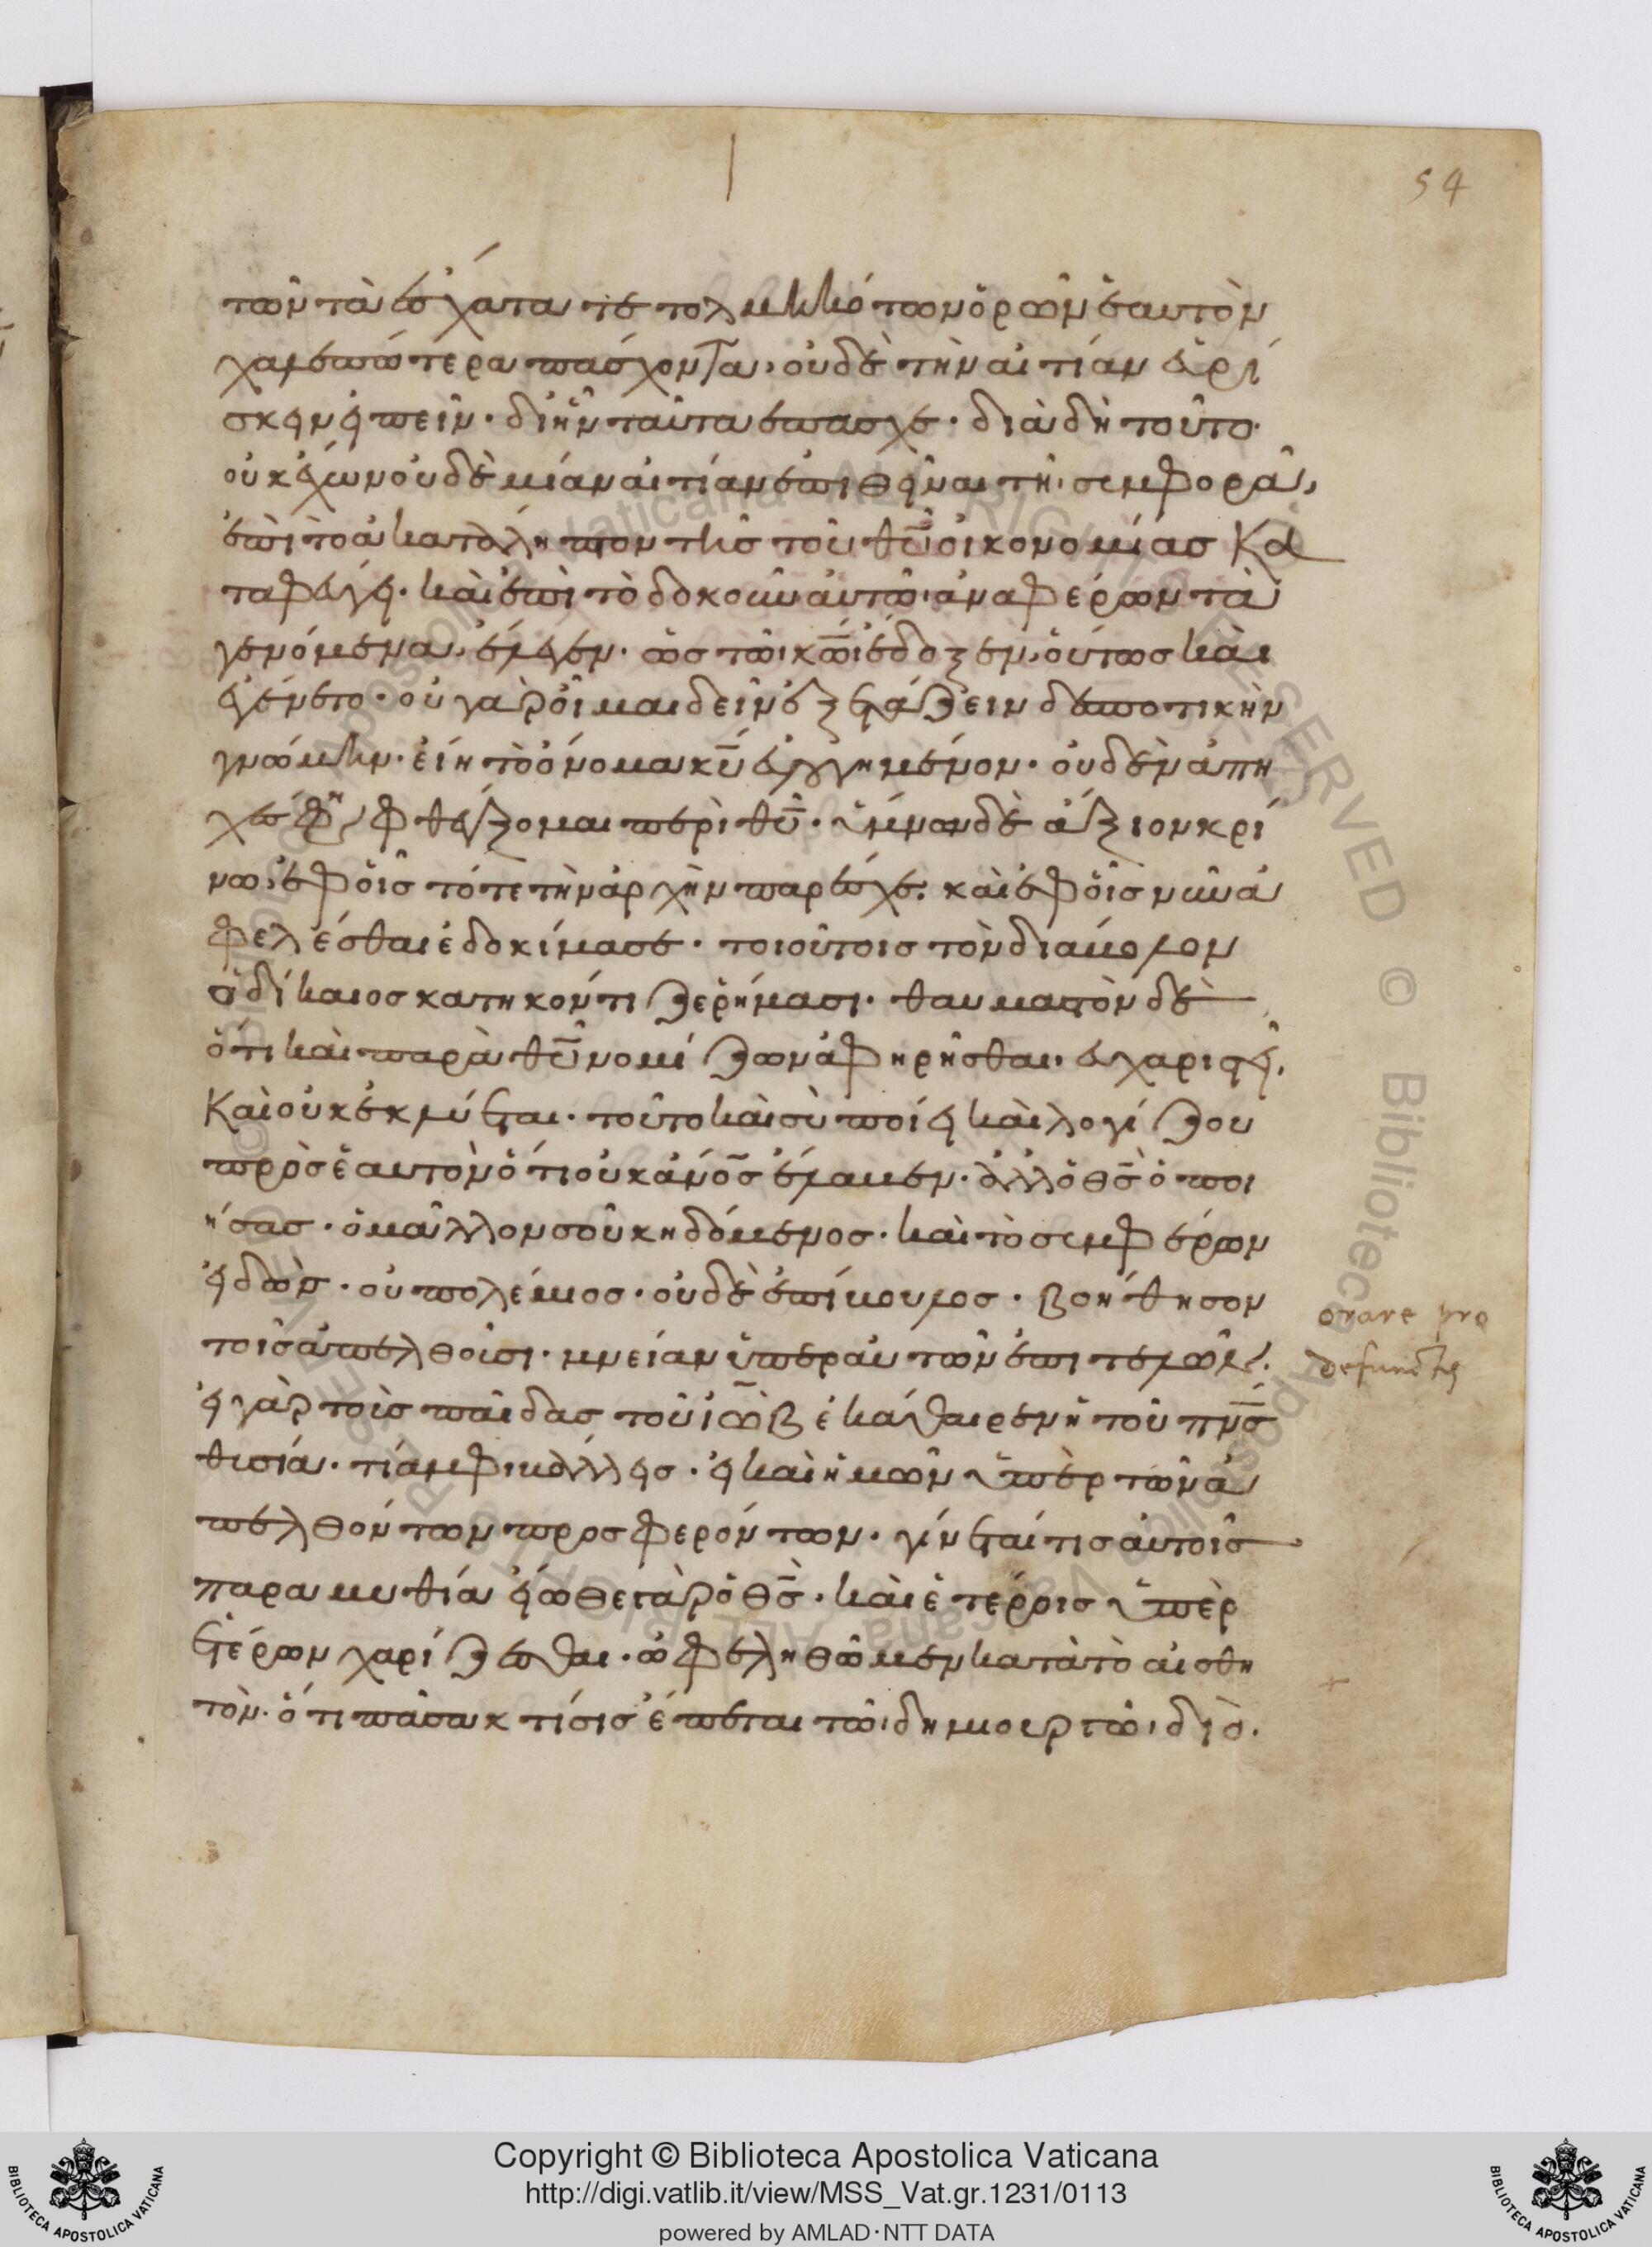 54
τῶν τὰ ἔσχατα τετολμηκότων ὁρῶν ἑαυτὸν
χαλεπώτερα πάσχοντα, οὐδὲ τὴν αἰτίαν εὑρί
σκειν εἰπεῖν· δι ἣν ταῦτα ἔπασχε· διὰ δὴ τοῦτο·
οὐκ ἔχων οὐδὲ μίαν αἰτίαν ἐπιθεῖναι τῆι συμφορᾶ,
ἐπὶ τὸ ἀκατάληπτον τῆς τοῦ θυ̅ οἰκονομίας κα
ταφεύγει· καὶ ἐπὶ τὸ δοκοῦν αὐτῶι ἀναφέρων τὰ
γενόμενα, ἔλεγεν· ὡς τῶι κω̅ι ἔδοξεν, οὕτως καὶ
ἐγένετο· οὐ γὰρ οἶμαι δεῖν ἐξετάζειν δεσποτικὴν
γνώμην· εἴη τὸ ὄνομα κυ̅ εὐλογημένον· οὐδὲν ἀπη
χὲς φη φθέγξομαι περὶ θυ̅· ὕμνων δὲ ἄξιον κρί
νω, ἐφ οἷς τότε τὴν ἀρχὴν παρέσχε· καὶ ἐφ οἷς νῦν ἀ
φελέσθαι ἐδοκίμασε· τοιούτοις τὸν διάβολον
ὁ δίκαιος κατηκόντιζε ῥήμασι· θαυμαστὸν δὲ
ὅτι καὶ παρὰ θυ̅ νομίζων ἀφηρῆσθαι, εὐχαριστεῖ,
καὶ οὐκ ἐκλύεται· τοῦτο καὶ σὺ ποίει καὶ λογίζου
πρὸς ἑαυτὸν ὅτι οὐκ ἀνο̅ς ἔλαβεν· ἀλλ ὁ θς̅ ὁ ποι
ήσας· ὁ μᾶλλον σοῦ κηδόμενος· καὶ τὸ συμφέρων
εἰδὼς· οὐ πολέμιος· οὐδὲ ἐπίβουλος· βοήθησον
τοῖς ἀπελθοῦσι· μνείαν ὑπερ αὐτῶν ἐπιτελῶν·
εἰ γὰρ τοὺς παῖδας τοῦ ἰὼβ ἐκάθαιρεν ἡ τοῦ πρ̅ς
θυσία· τί ἀμφιβάλλεις· εἰ καὶ ἡμῶν ὑπὲρ τῶν ἀ
πελθόντων προσφερόντων· γίνεταί τις αὐτοῖς
παραμυθία εἴωθε γὰρ ὁ θς̅· καὶ ἑτέροις ὑπὲρ
ἑτέρων χαρίζεσθαι· ὠφεληθῶμεν κατὰ τὸ αἰσθη
τὸν· ὅτι πᾶσα κτίσις ἕπεται τῶι δημιουργῶι, διὸ·
orare pro
defunctis
Copyright © Biblioteca Apostolica Vaticana
http://digi.vatlib.it/view/MSS_Vat.gr.1231/0113
powered by AMLAD·NTT DATA